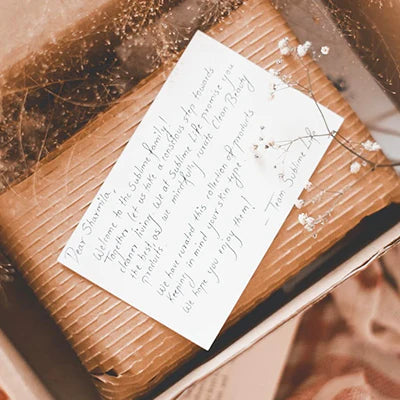 Dear Sharmila,
Welcome to the Sublime Family!
Together let us take a conscious step towards
cleaner living. We at Sublime Life promise you
the best as we mindfully curate Clean Beauty
products.
We have curated this collection of products
keeping in mind your skin type.
We hope you enjoy them!
— Team Sublime Life